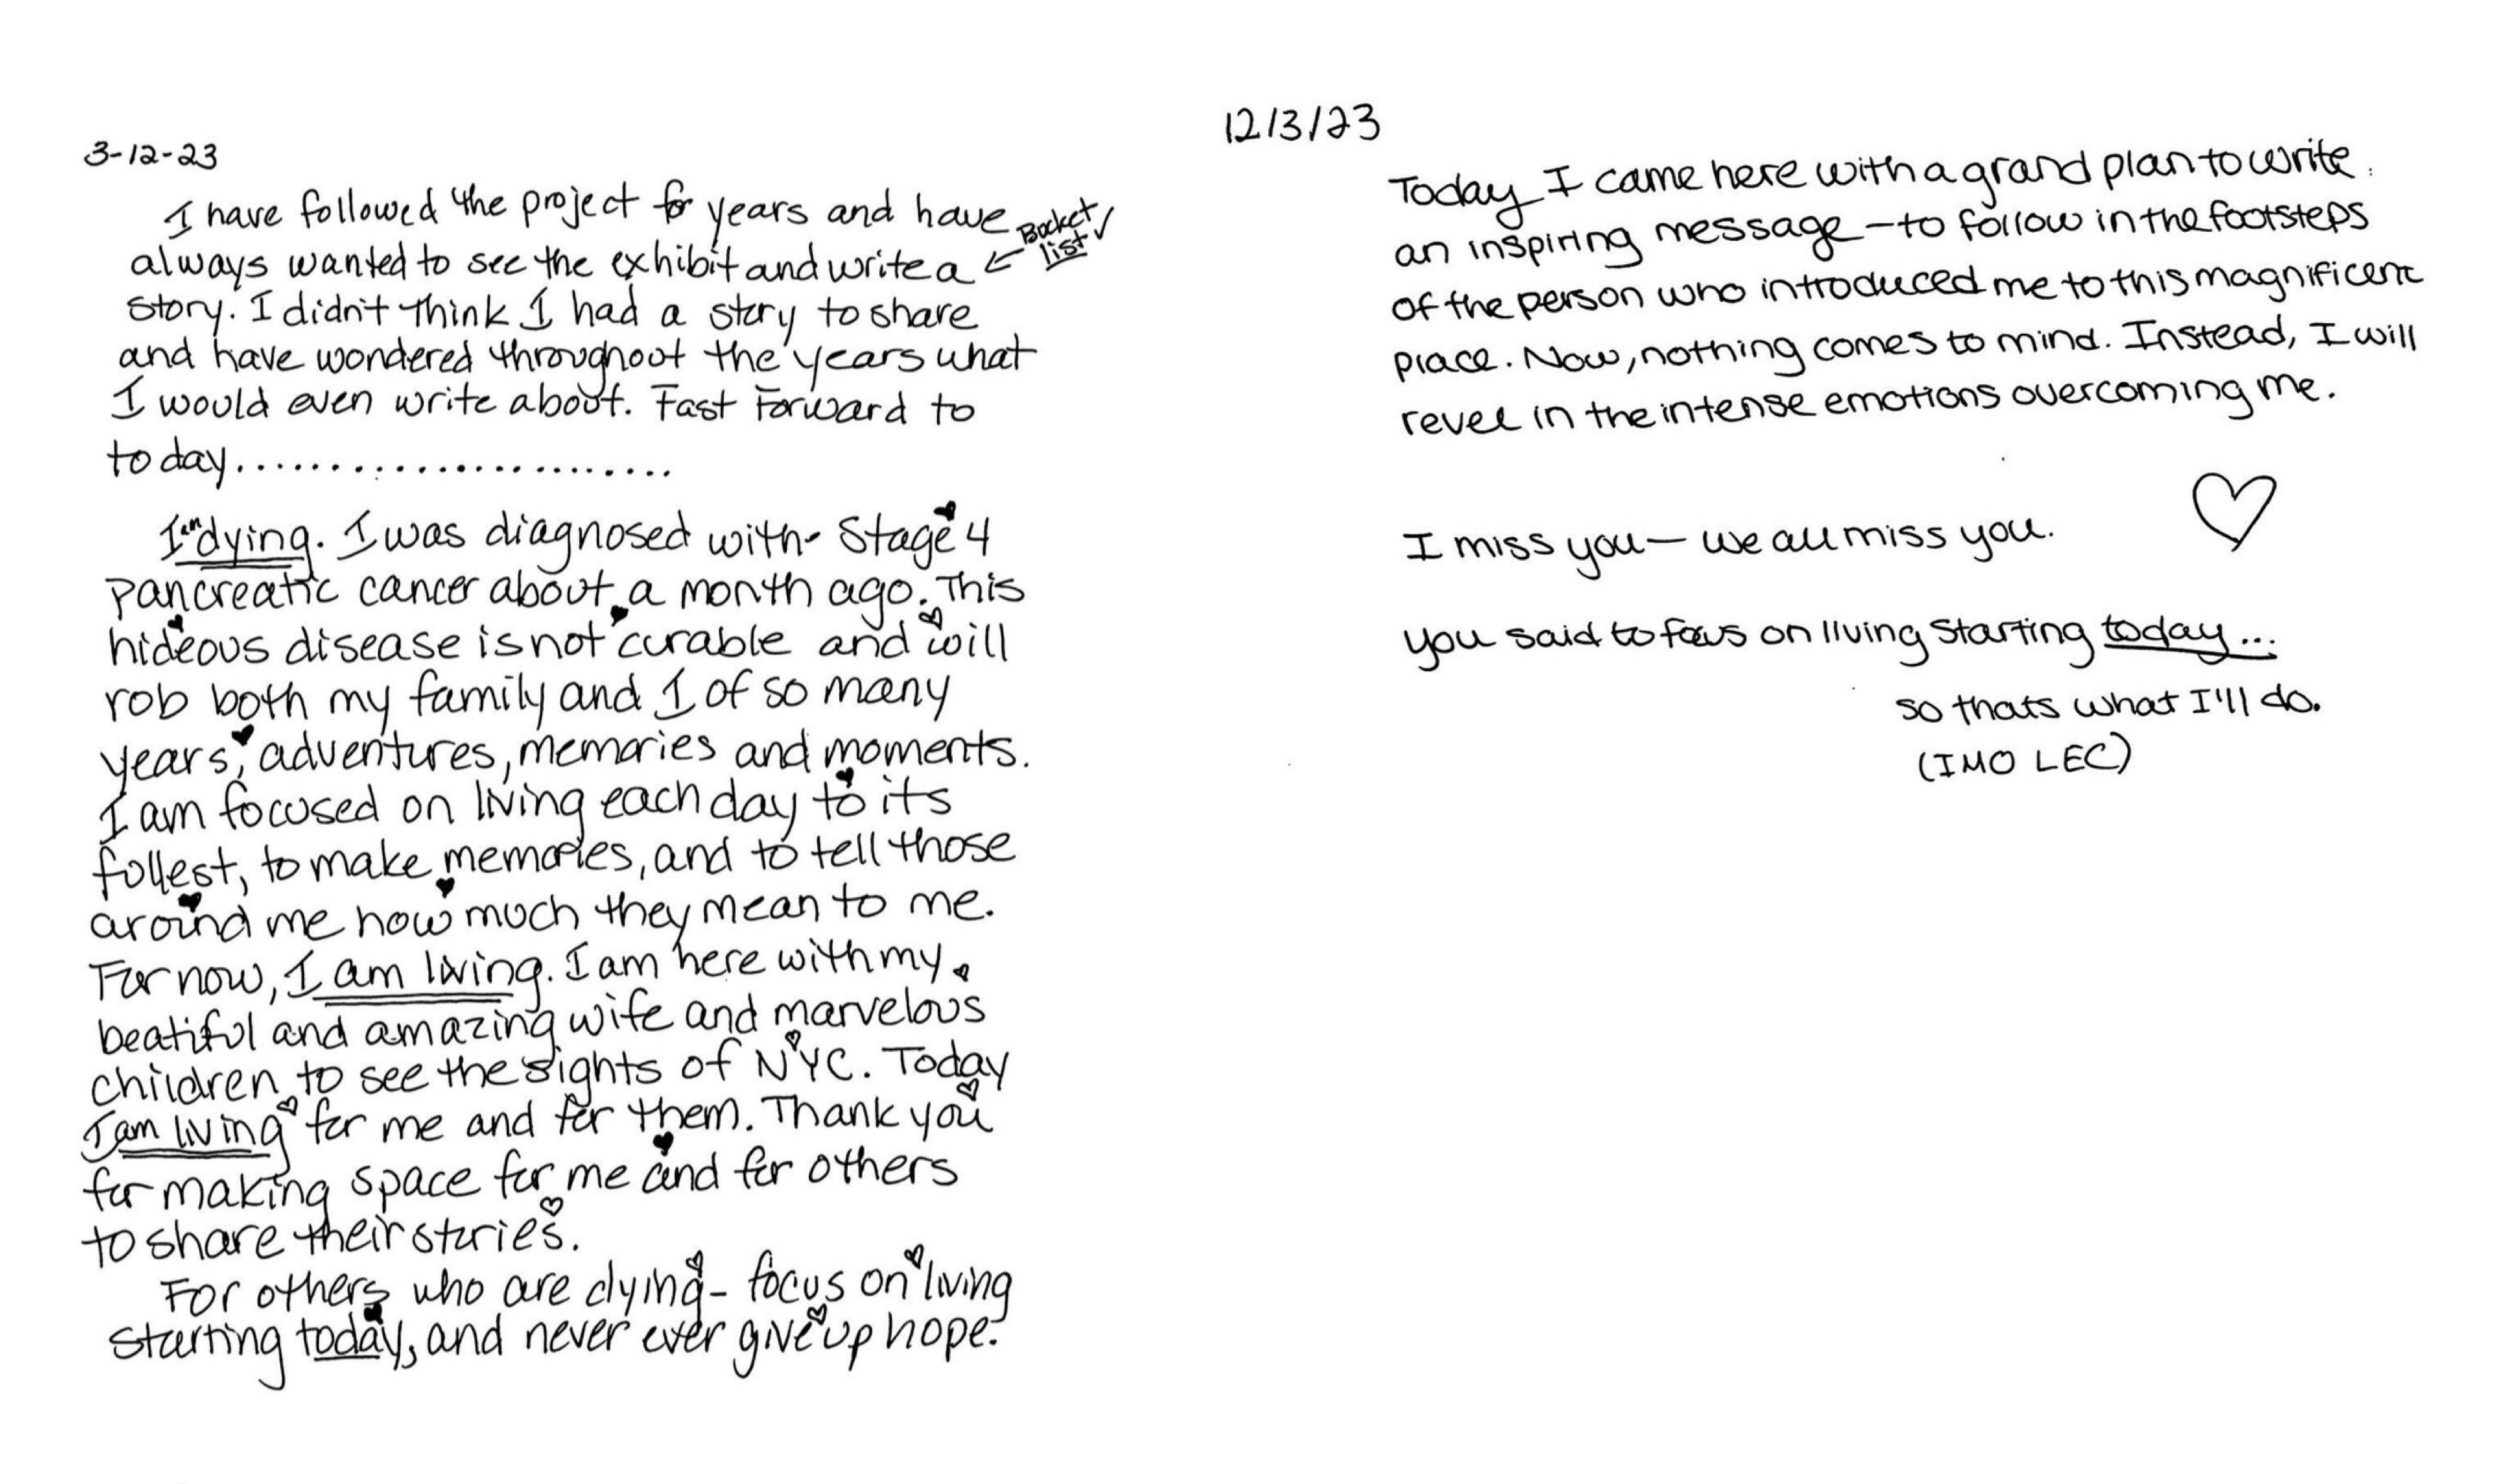 3-12-23
I have followed the project for years and have
always wanted to see the exhibit and write a ← Bucket list ✓
story. I didn't think I had a story to share
and have wondered throughout the years what
I would even write about. Fast Forward to
today........................
I'm dying. I was diagnosed with Stage 4
pancreatic cancer about a month ago. This
hideous disease is not curable and will
rob both my family and I of so many
years, adventures, memories and moments.
I am focused on living each day to its
fullest, to make memories, and to tell those
around me how much they mean to me.
For now, I am living. I am here with my
beatiful and amazing wife and marvelous
children to see the sights of NYC. Today
I am living for me and for them. Thank you
for making space for me and for others
to share their stories.
For others who are dying - focus on living
starting today, and never ever give up hope.
12/3/23
Today I came here with a grand plan to write
an inspiring message — to follow in the footsteps
of the person who introduced me to this magnificent
place. Now, nothing comes to mind. Instead, I will
revel in the intense emotions overcoming me.
♡
I miss you — we all miss you.
you said to focus on living starting today...
so thats what I'll do.
(IMO LEC)